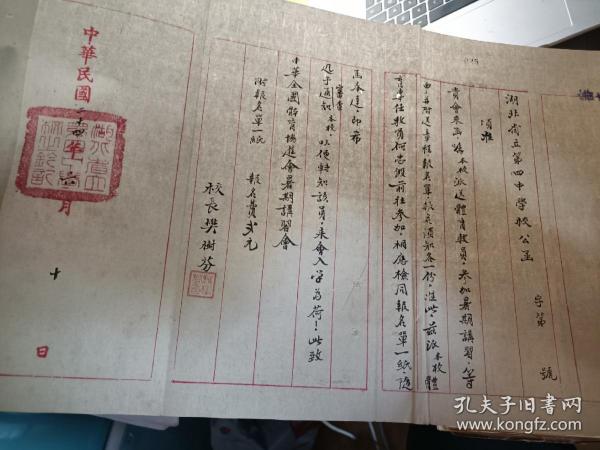 湖北省立第四中学校公函 字第 號
逕准
貴會來函,為本校派送體育教員,參加暑期講習,等
由,并附送章程報名單,報名須知各一份,准此,茲派本校體
育專任教員何忠閥前往參加,相應檢同報名單一紙,隨
函奉達,即希
審查
迅予通知本校,以便轉知該員,來會入學為荷!此致
中華全國體育協進會暑期講習會
附報名單一紙 報名費弍元
校長樊樹芬
中華民國二十四年六月十日
孔夫子旧书网
www.kongfz.com